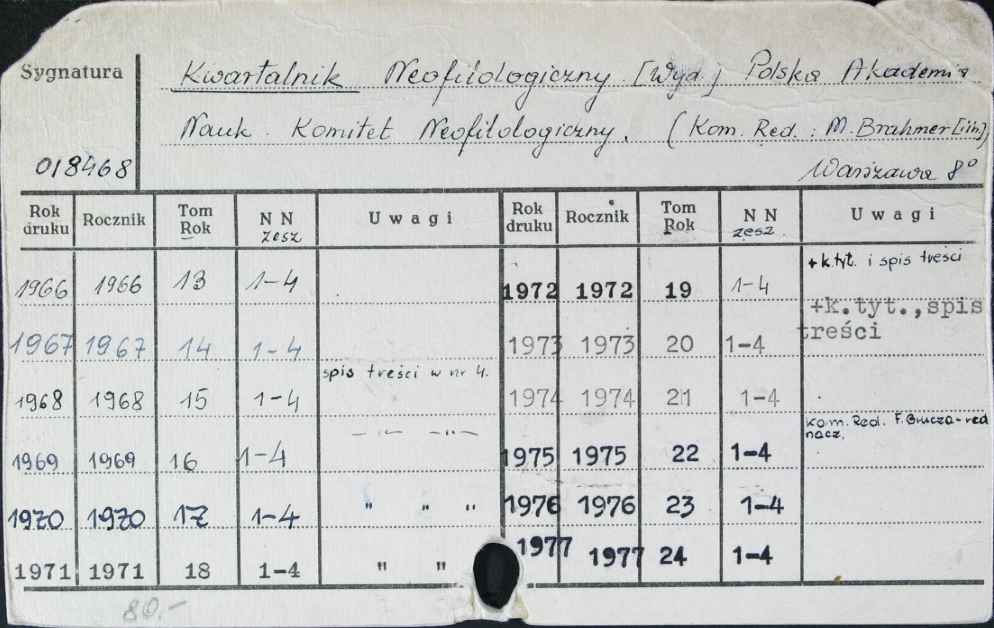 Sygnatura
Kwartalnik Neofilologiczny [Wyd.] Polska Akademia
Nauk. Komitet Neofilologiczny. (Kom. Red.: M. Brahmer [i in.])
018468
Warszawa 8°
Rok druku Rocznik Tom Rok NN zesz Uwagi Rok druku Rocznik Tom Rok NN zesz. Uwagi
1966 1966 13 1-4 1972 1972 19 1-4 + k. tyt. i spis treści
+k.tyt.,spis
1967 1967 14 1-4 1973 1973 20 1-4 treści
1968 1968 15 1-4 spis treści w nr 4. 1974 1974 21 1-4
1969 1969 16 1-4 -"- -"- 1975 1975 22 1-4 Kom. Red. F. Grucza - red
nacz.
1970 1970 17 1-4 " " " 1976 1976 23 1-4
1971 1971 18 1-4 " " 1977 1977 24 1-4
80.-